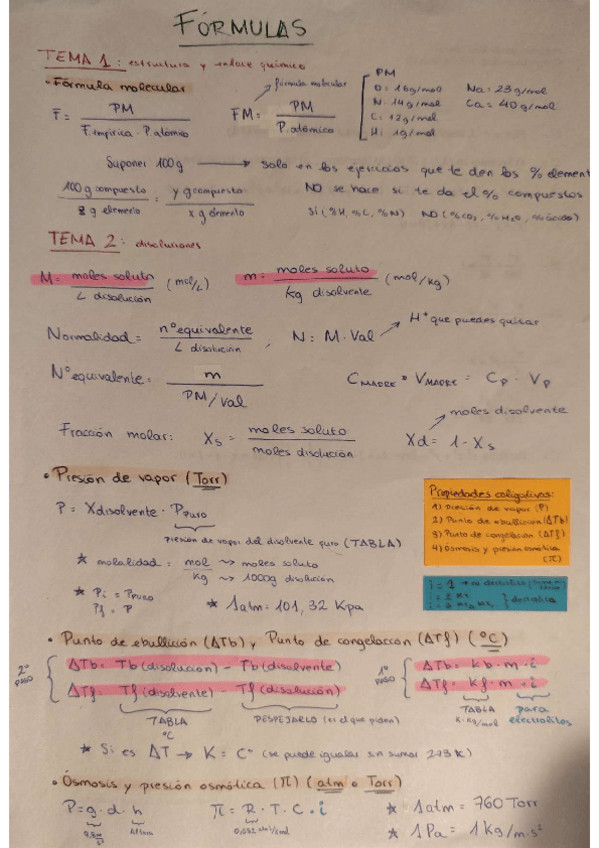 FÓRMULAS
TEMA 1: estructura y enlace químico
• Fórmula molecular
fórmula molecular
PM
O: 16g/mol Na: 23g/mol
N: 14g/mol Ca: 40g/mol
C: 12g/mol
H: 1g/mol
F = PM / F.empírica · P.atómico
FM = PM / P.atómico
Suponer 100g → solo en los ejercicios que te den los % element
100g compuesto / g elemento = y g compuesto / x g elemento
NO se hace si te da el % compuestos
Sí (%H, %C, %N) NO (%CO₂, %H₂O, )
TEMA 2: disoluciones
M = moles soluto / L disolución (mol/L)
m = moles soluto / Kg disolvente (mol/Kg)
Normalidad = nº equivalente / L disolución, N = M · Val
H⁺ que puedes quitar
Nº equivalente = m / PM/val
C MADRE · V MADRE = Cp · Vp
Fracción molar: Xs = moles soluto / moles disolución
Xd = 1 - Xs
moles disolvente
• Presión de vapor (Torr)
P = Xdisolvente · Ppuro
Presión de vapor del disolvente puro (TABLA)
★ molalidad = mol / kg
moles soluto
1000g disolución
★ Pi = Ppuro
Pf = P
★ 1atm = 101,32 Kpa
Propiedades coligativas:
1) Presión de vapor (P)
2) Punto de ebullición (ΔTb)
3) Punto de congelación (ΔTf)
4) Ósmosis y presión osmótica (π)
i = 1 → no electrolito
electrolito
• Punto de ebullición (ΔTb) y Punto de congelación (ΔTf) (°C)
2º PASO
ΔTb = Tb (disolución) - Tb (disolvente)
ΔTf = Tf (disolvente) - Tf (disolución)
1º PASO
ΔTb = kb · m · i
ΔTf = kf · m · i
TABLA °C
DESPEJARLO (es el que piden)
TABLA K·Kg/mol
para electrolitos
★ Si es ΔT → K = Cº (se puede igualar sin sumar 273 K)
• Ósmosis y presión osmótica (π) (atm o Torr)
P = g · d · h
9,8 m/s²
Altura
π = R · T · C · i
★ 1atm = 760 Torr
★ 1 Pa = 1 Kg/m·s²